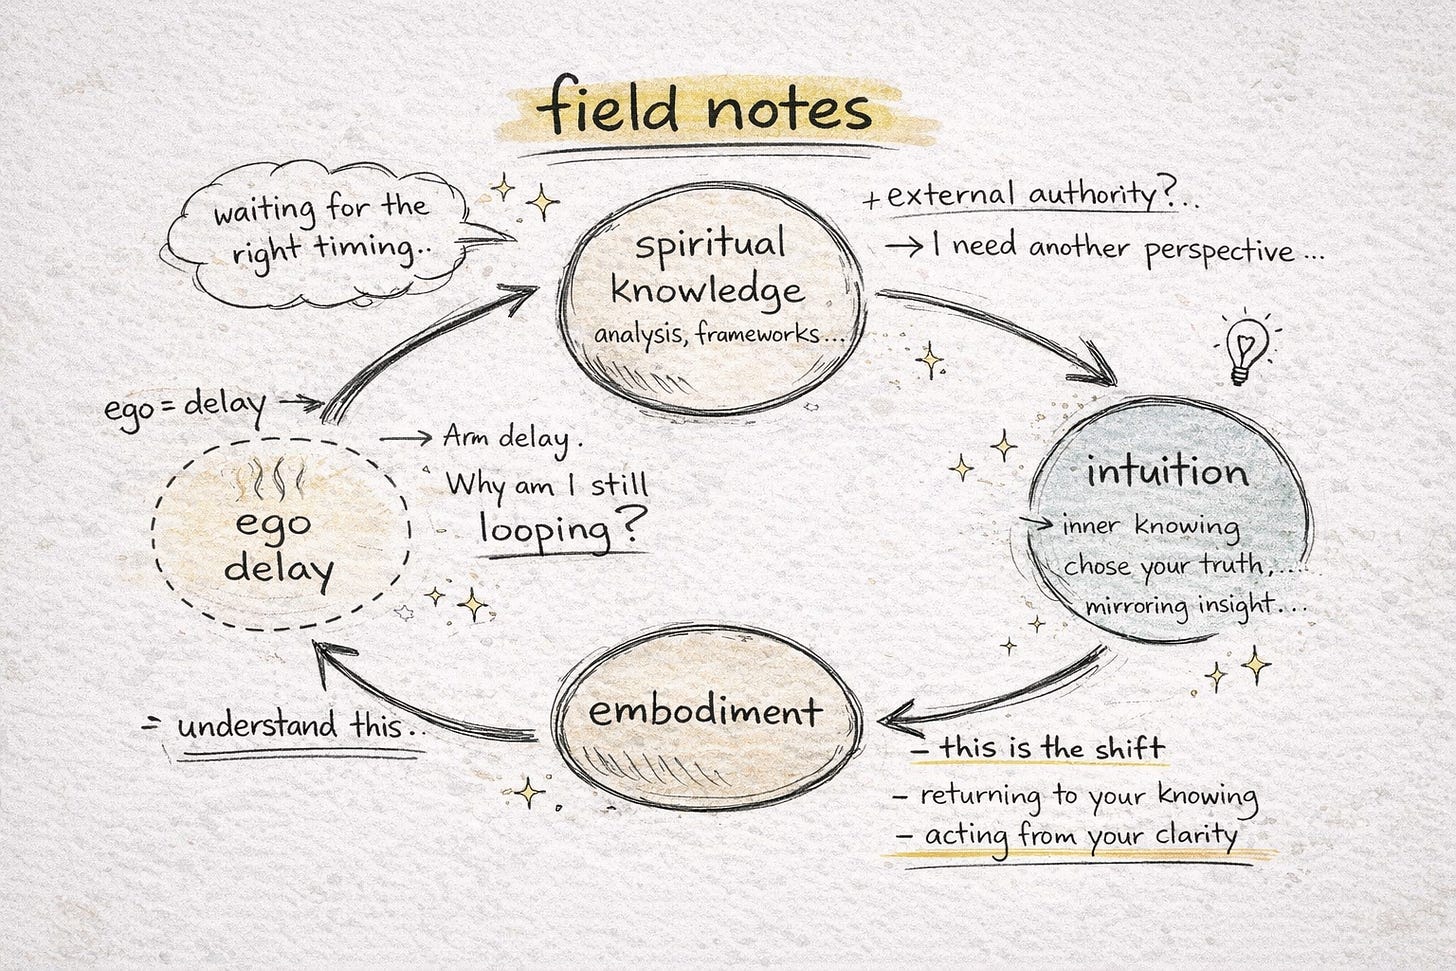 field notes
waiting for the
right timing..
spiritual
knowledge
analysis, frameworks...
+ external authority?...
→ I need another perspective ...
ego = delay →
ego
delay
→ Arm delay.
Why am I still
looping?
intuition
→ inner knowing
chose your truth,....
mirroring insight...
embodiment
= understand this..
– this is the shift
– returning to your knowing
– acting from your clarity